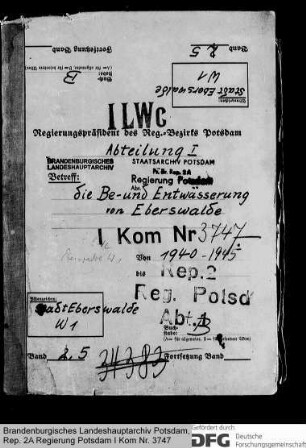 Band 2.5
Fortsetzung Band
B
Aktenzeichen:
Stadt Eberswalde
W1
ILWc
Regierungspräsident des Reg.-Bezirks Potsdam
Abteilung I
BRANDENBURGISCHES
LANDESHAUPTARCHIV
STAATSARCHIV POTSDAM
Pr. Br. Rep. 2A
Regierung Potsdam
Betreff:
Abt.
die Be- und Entwässerung
von Eberswalde
I Kom Nr 3747
Von 1940-1945
bis
Rep. 2
Reg. Potsd
Abt. I
Aktenzeichen:
Stadt Eberswalde
W1
Buch-
stabe: B
Band 2.5
34383
Fortsetzung Band
Brandenburgisches Landeshauptarchiv Potsdam,
Rep. 2A Regierung Potsdam I Kom Nr. 3747
Gefördert durch:
DFG
Deutsche
Forschungsgemeinschaft